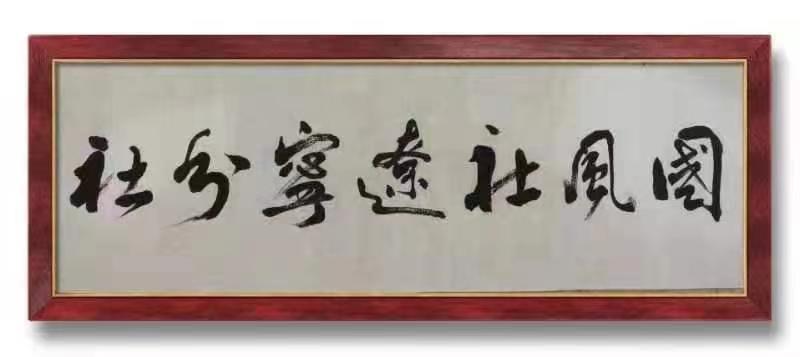 國風社遼寧分社